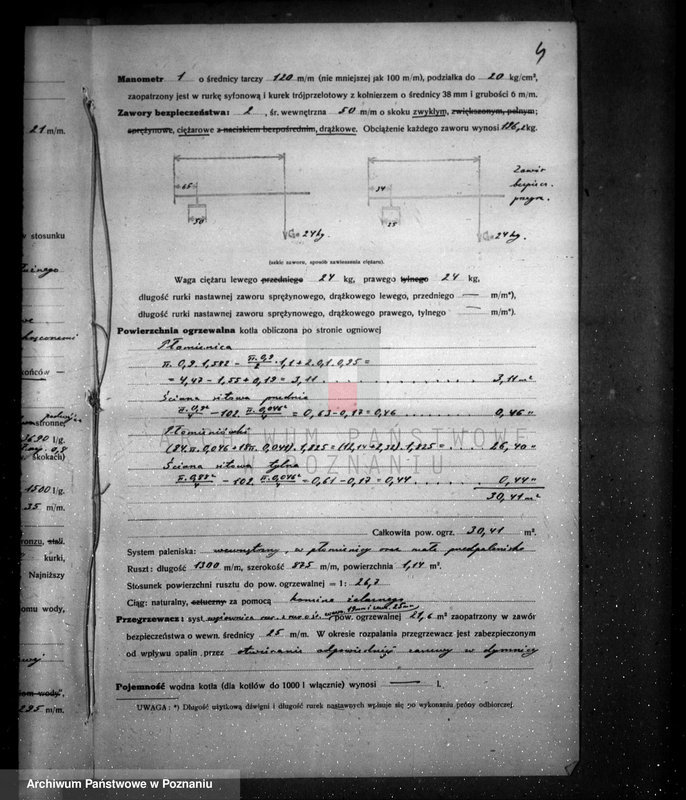 4
Manometr 1 o średnicy tarczy 120 m/m (nie mniejszej jak 100 m/m), podziałka do 20 kg/cm²,
zaopatrzony jest w rurkę syfonową i kurek trójprzelotowy z kołnierzem o średnicy 38 mm i grubości 6 m/m.
Zawory bezpieczeństwa: 2, śr. wewnętrzna 50 m/m o skoku zwykłym, zwiększonym, pełnym;
sprężynowe, ciężarowe z naciskiem bezpośrednim, drążkowe. Obciążenie każdego zaworu wynosi 196,2 kg.
65
50
G = 24 kg.
34
25
G = 24 kg.
Zawór
bezpiecz.
przegrz.
(szkic zaworu, sposób zawieszenia ciężaru).
Waga ciężaru lewego przedniego 24 kg, prawego tylnego 24 kg,
długość rurki nastawnej zaworu sprężynowego, drążkowego lewego, przedniego — m/m*),
długość rurki nastawnej zaworu sprężynowego, drążkowego prawego, tylnego — m/m*).
Powierzchnia ogrzewalna kotła obliczona po stronie ogniowej
Płomienica
π. 0,9. 1,582 − π.0,9/2 . 1,1 + 2.0,1.0,95 =
= 4,47 − 1,55 + 0,19 = 3,11 . . . . . . . . 3,11 m²
Ściana sitowa przednia
π.0,9²/4 − 102 π.0,046²/4 = 0,63 − 0,17 = 0,46 . . . . . . 0,46 "
Płomieniówki
(84.π.0,046 + 18π.0,040). 1,825 = (12,14 + 2,32). 1,825 = . . . . 26,40 "
Ściana sitowa tylna
π.0,88²/4 − 102 π.0,046²/4 = 0,61 − 0,17 = 0,44 . . . . . . 0,44 "
30,41 m²
Całkowita pow. ogrz. 30,41 m².
System paleniska: wewnętrzny, w płomienicy oraz małe przedpalenisko
Ruszt: długość 1300 m/m, szerokość 875 m/m, powierzchnia 1,14 m².
Stosunek powierzchni rusztu do pow. ogrzewalnej = 1: 26,7
Ciąg: naturalny, sztuczny za pomocą komina żelaznego
Przegrzewacz: syst. pow. ogrzewalnej 21,6 m² zaopatrzony w zawór
bezpieczeństwa o wewn. średnicy 25 m/m. W okresie rozpalania przegrzewacz jest zabezpieczony
od wpływu spalin przez otwieranie odpowiedniej zasuwy w dymnicy
Pojemność wodna kotła (dla kotłów do 1000 l włącznie) wynosi — l.
UWAGA: *) Długość użytkową dźwigni i długość rurek nastawnych wpisuje się po wykonaniu próby odbiorczej.
21 m/m.
w stosunku
kończów —
stronne,
3690 l/g.
skokach)
1500 l/g.
35 m/m.
bronzu, stali.
kurki,
Najniższy
omu wody,
295 m/m.
ARCHIWUM PAŃSTWOWE
W POZNANIU
Archiwum Państwowe w Poznaniu